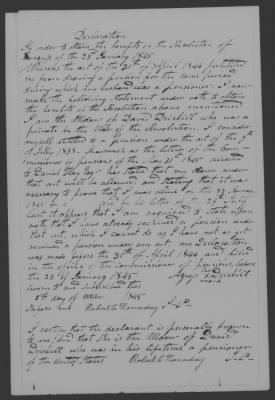 Declaration
In order to obtain the benefits of the Resolution of
Congress of the 23d January 1845
Whereas the act of the 30th of April 1844 prohibits
me from drawing a pension for the same period
during which my husband was a pensioner. I now
make the following statement under oath to obtain
the benefits of the Resolution above mentioned
I am the Widow of David Driskill who was a
private in the War of the Revolution. I consider
myself entitled to a pension under the act of the
of July 1838. Inasmuch as the letter of the Com-
missioner of pensions of the May 31st 1845
to Daniel Hay Esqr has stated that my claim under
that act will be allowed, and stating that it was
necessary to prove that I was alive on the 23 January
1845 and in his letter of the 29th July
last it appears that I am required to state upon
oath that I have already received a pension under
that act, which I cannot do as I have not as yet
received a pension under any act. My Declaration
was made before the 30th of April 1844 and filed
in the office of the Commissioner of pensions, before
the 23d of January 1845
Sworn to and Subscribed this Driskill
5th day of 1845 mark
Before me Robert G Hunaday J.P.
I certify that the declarant is personally known
to me, and that she is the Widow of David
Driskill who was in his lifetime a pensioner
of the United States Robert G Hunaday J.P.